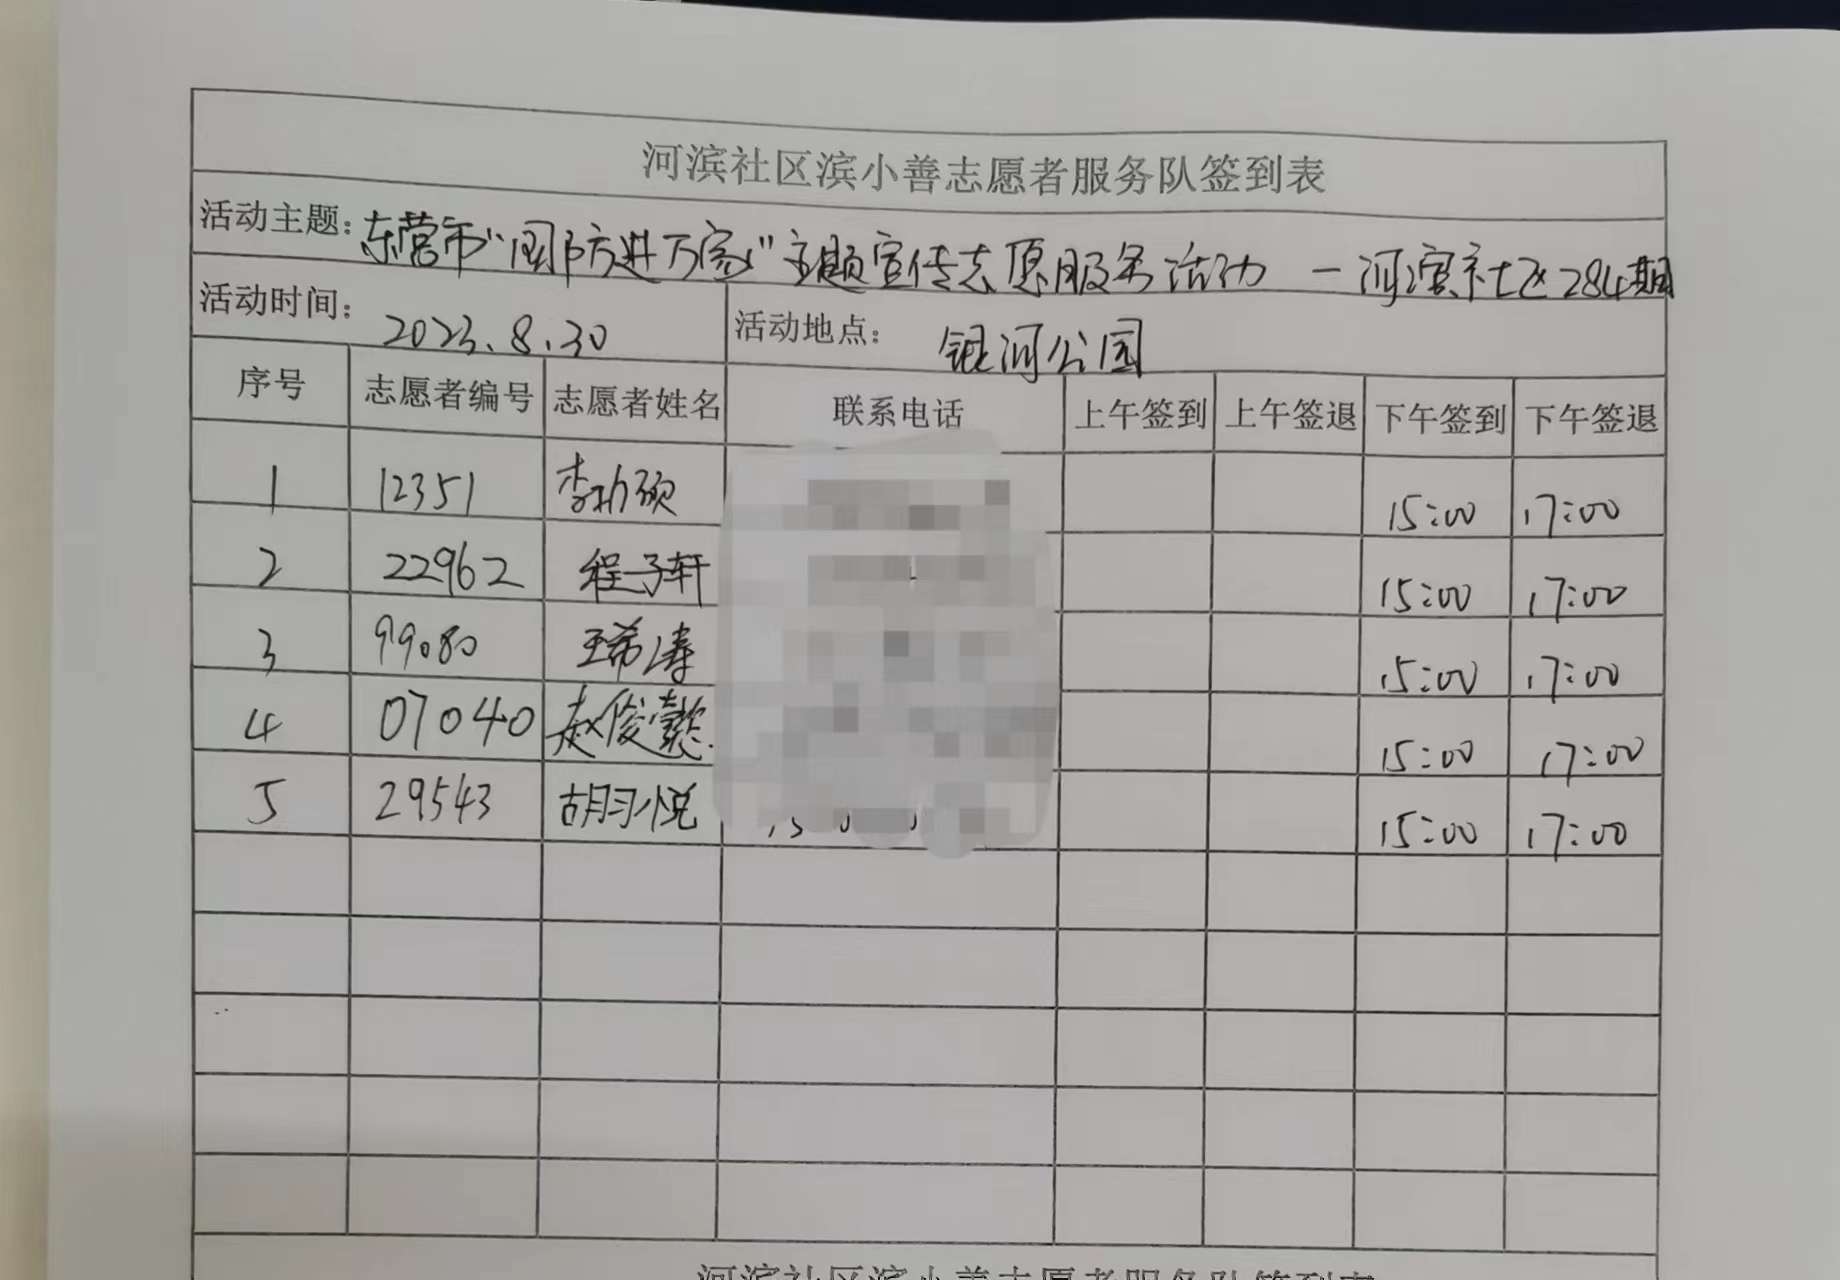 河滨社区滨小善志愿者服务队签到表
活动主题：东营市“国防进万家”主题宣传志愿服务活动 — 河滨社区284期
活动时间： 2023.8.30 活动地点： 银河公园
序号 志愿者编号 志愿者姓名 联系电话 上午签到 上午签退 下午签到 下午签退
1 12351 15:00 17:00
2 22962 程子轩 15:00 17:00
3 99080 王希涛 15:00 17:00
4 07040 赵俊懿 15:00 17:00
5 29543 15:00 17:00
河滨社区滨小善志愿者服务队签到表